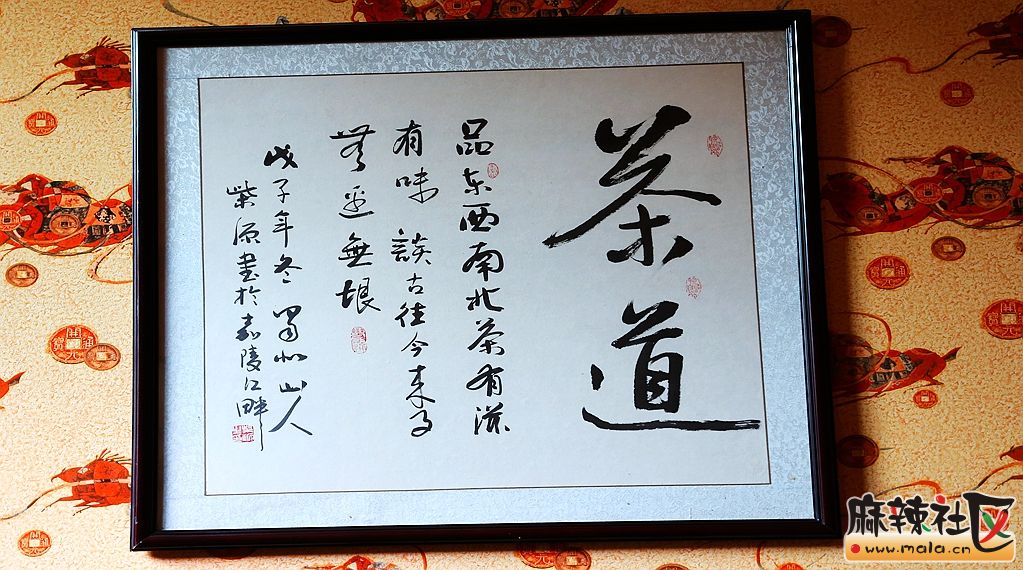 茶道
品东西南北茶有滋
有味談古往今来事
無边無垠
戊子年冬蜀北山人
紫源書於嘉陵江畔
麻辣社区
www.mala.cn